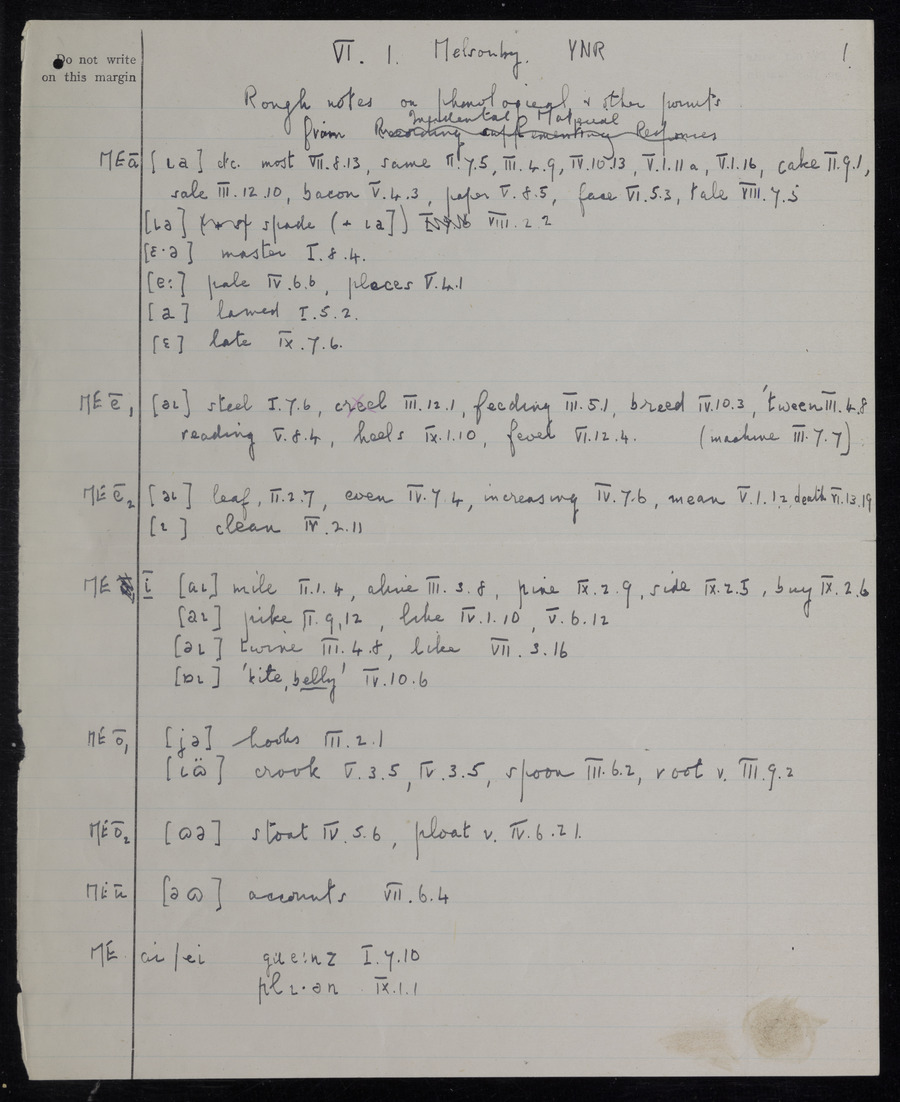 Do not write
on this margin
VI. 1. Melsonby. YNR 1.
Rough notes on phonological & other points
Incidental Material
from Recording supplementing Responses
ME ā [ɩə] etc. most VII.8.13, same II.7.5, III.4.9, IV.10.13, V.1.11a, V.1.16, cake II.9.1,
sale III.12.10, bacon V.4.3, paper V.8.5, face VI.5.3, tale VIII.7.5
[ɩa] spade (+ ɩə]) VIII.2.2
[ɛ·ə] master I.8.4.
[e:] pale IV.6.6, places V.4.1
[a] lamed I.5.2.
[ɛ] late IX.7.6.
ME ē₁ [əɩ] steel I.7.6, creel III.12.1, feeding III.5.1, breed IV.10.3, 'tween III.4.8
reading V.8.4, heels IX.1.10, fever VI.12.4. (machine III.7.7)
ME ē₂ [əɩ] leaf, II.2.7, even IV.7.4, increasing IV.7.6, mean V.1.12, death VI.13.19
[ɩ] clean IV.2.11
ME ī [aɩ] mile II.1.4, alive III.3.8, pine IX.2.9, side IX.2.5, buy IX.2.6
[aɩ] pike II.9.12, like IV.1.10, V.6.12
[əɩ] twine III.4.8, like VII.3.16
[ɒɩ] 'kite, belly' IV.10.6
ME ō₁ [jə] hooks III.2.1
[ɩɷ̈] crook V.3.5, IV.3.5, spoon III.6.2, root v. III.9.2
ME ō₂ [ɷə] stoat IV.5.6, ploat v. IV.6.21.
ME ū [əɷ] accounts VII.6.4
ME ai/ei que:nz I.7.10
plɩ·ən IX.1.1